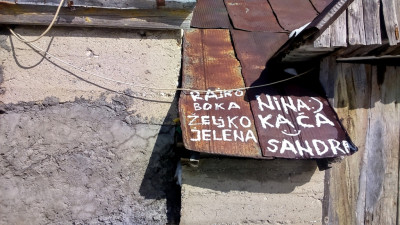 RAJKO
BOKA
ŽELJKO
JELENA
NINA:)
KAĆA
SANDRA